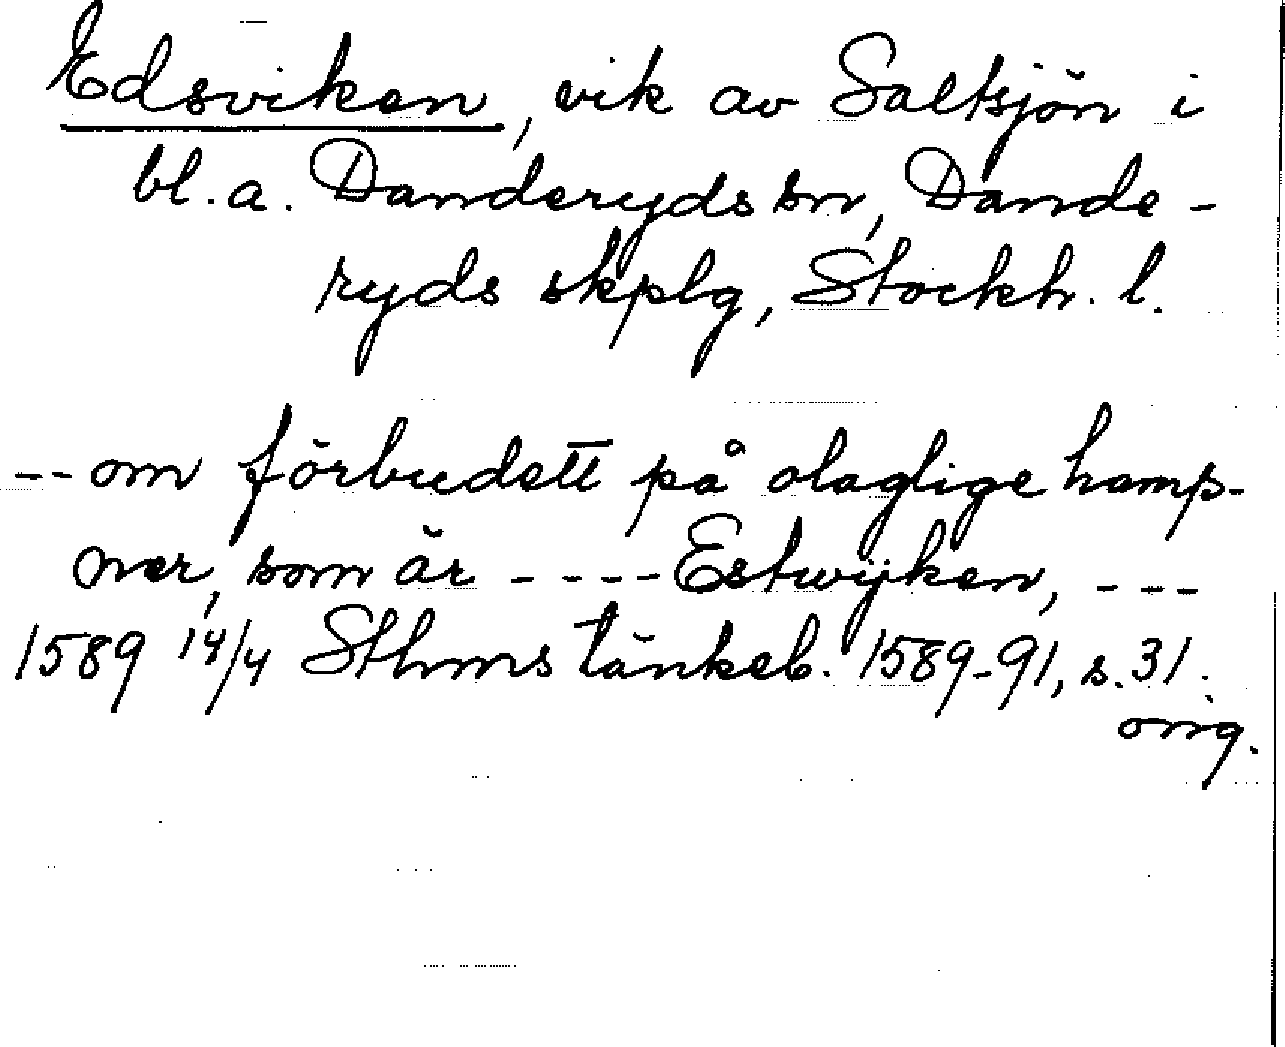 Edsviken, vik av Saltsjön i
bl. a. Danderyds sn, Dande-
ryds skplg, Stockh. l.
-- om förbudett på olaglige hamp-
ner, som är ---- Estwijken, ---
1589 14/4 Sthms tänkeb. 1589-91, s. 31.
orig.